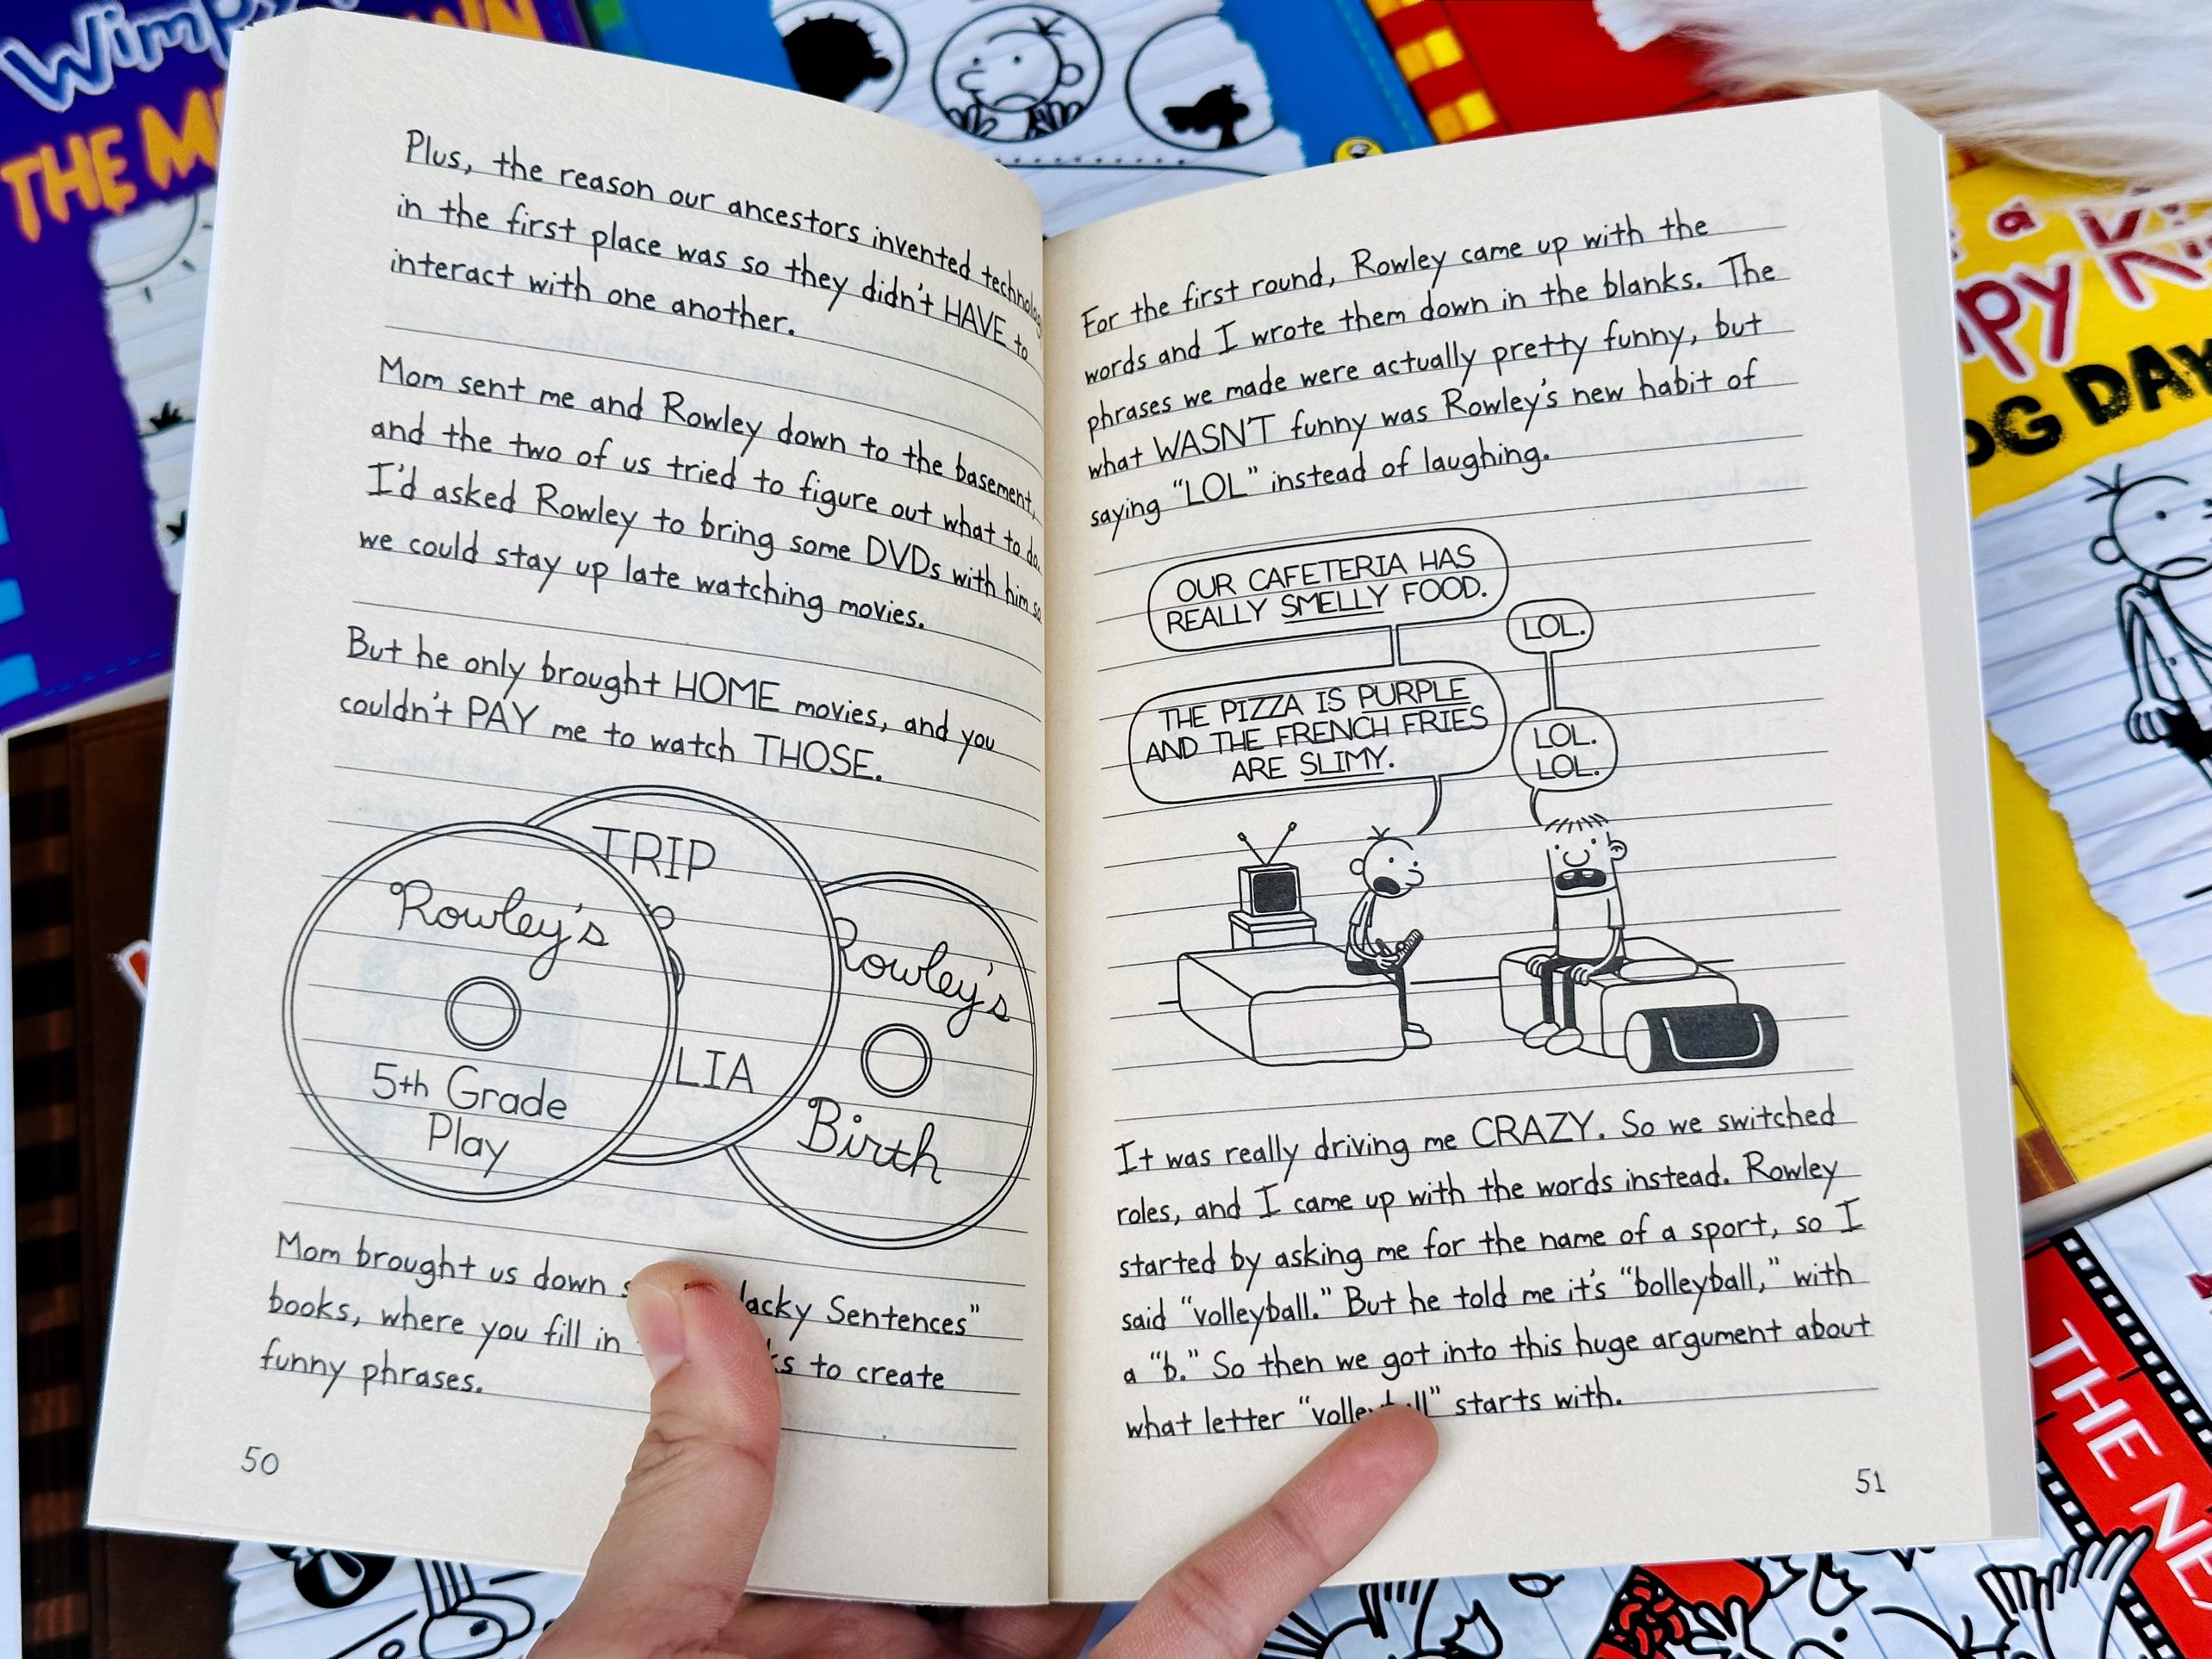 Wimpy
THE M
Plus, the reason our ancestors invented
in the first place was so they didn't HAVE to
interact with one another.
Mom sent me and Rowley down to the basement,
and the two of us tried to figure out what to do.
I'd asked Rowley to bring some DVDs with him so
we could stay up late watching movies.
But he only brought HOME movies, and you
couldn't PAY me to watch THOSE.
Rowley's
5th Grade
Play
TRIP
LIA
Rowley's
Birth
Mom brought us down
Sentences"
books, where you fill in
to create
funny phrases.
50
For the first round, Rowley came up with the
words and I wrote them down in the blanks. The
phrases we made were actually pretty funny, but
what WASN'T funny was Rowley's new habit of
saying "LOL" instead of laughing.
OUR CAFETERIA HAS
REALLY SMELLY FOOD.
LOL.
THE PIZZA IS PURPLE
AND THE FRENCH FRIES
ARE SLIMY.
LOL.
LOL.
It was really driving me CRAZY. So we switched
roles, and I came up with the words instead. Rowley
started by asking me for the name of a sport, so I
said "volleyball." But he told me it's "bolleyball," with
a "b." So then we got into this huge argument about
what letter "volleyball" starts with.
51
a
DAY
THE